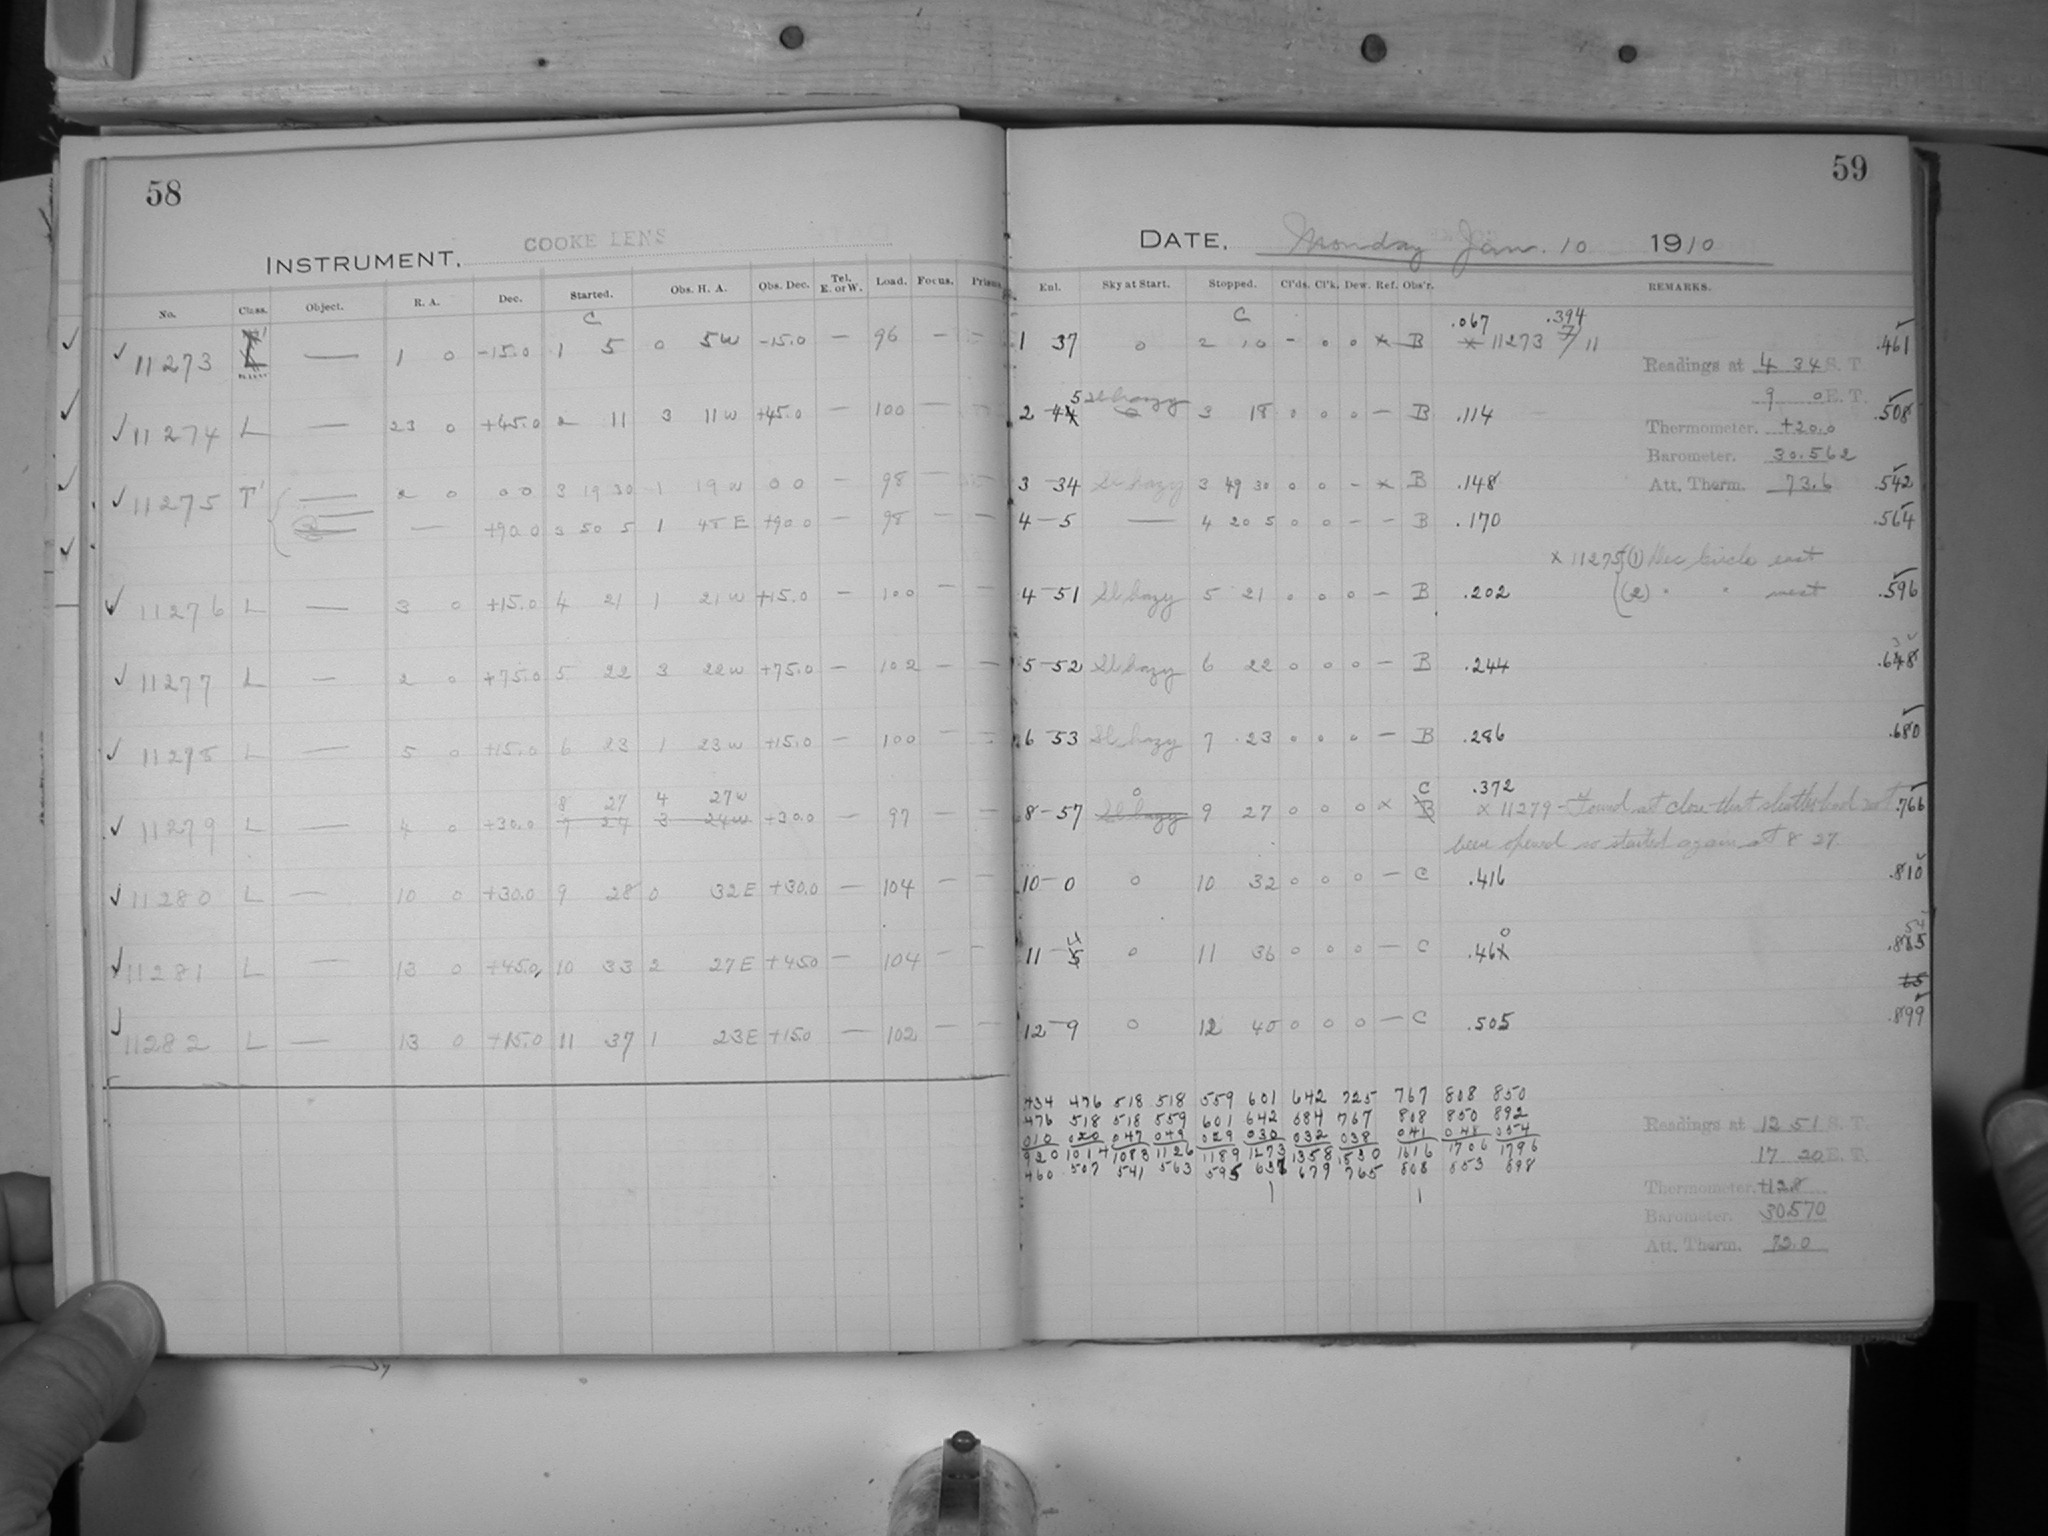 58
INSTRUMENT, COOKE LENS
No. Class. Object. R. A. Dec. Started. Obs. H. A. Obs. Dec. Tel. E. or W. Load. Focus. Prisms
C
11273 L — 1 0 -15.0 1 5 0 5W -15.0 — 96 — —
11274 L — 23 0 +45.0 2 11 3 11W +45.0 — 100 —
11275 T' — 2 0 0 0 3 19 30 1 19W 0 0 — 98 —
— +90.0 3 50 5 1 45 E +90.0 — 98 — —
11276 L — 3 0 +15.0 4 21 1 21W +15.0 — 100 — —
11277 L — 2 0 +75.0 5 22 3 22W +75.0 — 102 — —
11278 L — 5 0 +15.0 6 23 1 23W +15.0 — 100 — —
8 27 4 27W
11279 L — 4 0 +30.0 7 24 3 24W +30.0 — 97 — —
11280 L — 10 0 +30.0 9 28 0 32E +30.0 — 104 — —
11281 L — 13 0 +45.0 10 33 2 27E +45.0 — 104 — —
11282 L — 13 0 +15.0 11 37 1 23E +15.0 — 102 — —
59
DATE, Monday Jan. 10 1910
Enl. Sky at Start. Stopped. Cl'ds. Cl'k. Dew. Ref. Obs'r. REMARKS.
C .067 .394
1 37 0 2 10 - 0 0 x B x 11273 7/11 .461
Readings at 4 34 S. T.
9 0 E. T.
2-45 Sl hazy 3 18 0 0 0 — B .114 .508
Thermometer. +20.0
Barometer. 30.562
3-34 Sl hazy 3 49 30 0 0 - x B .148 .542
Att. Therm. 73.6
4-5 — 4 20 5 0 0 - - B .170 .564
x 11275 (1) Dec circle east
4-51 Sl hazy 5 21 0 0 0 — B .202 (2) " " west .596
5-52 Sl hazy 6 22 0 0 0 — B .244 .648
6-53 Sl hazy 7 23 0 0 0 — B .286 .680
0 C .372
8-57 Sl hazy 9 27 0 0 0 x B x 11279 - Found at close that shutter had not .766
been opened so started again at 8 27.
10-0 0 10 32 0 0 0 — C .416 .810
11-5 0 11 36 0 0 0 — C .46 .885
12-9 0 12 40 0 0 0 — C .505 .899
434 476 518 518 559 601 642 725 767 808 850
476 518 518 559 601 642 684 767 808 850 892
010 020 047 049 029 030 032 038 041 048 054
920 1014 1083 1126 1189 1273 1358 1530 1616 1706 1796
460 507 541 563 595 637 679 765 808 853 898
Readings at 12 51 S. T.
17 20 E. T.
Thermometer. +12.8
Barometer. 30.570
Att. Therm. 72.0